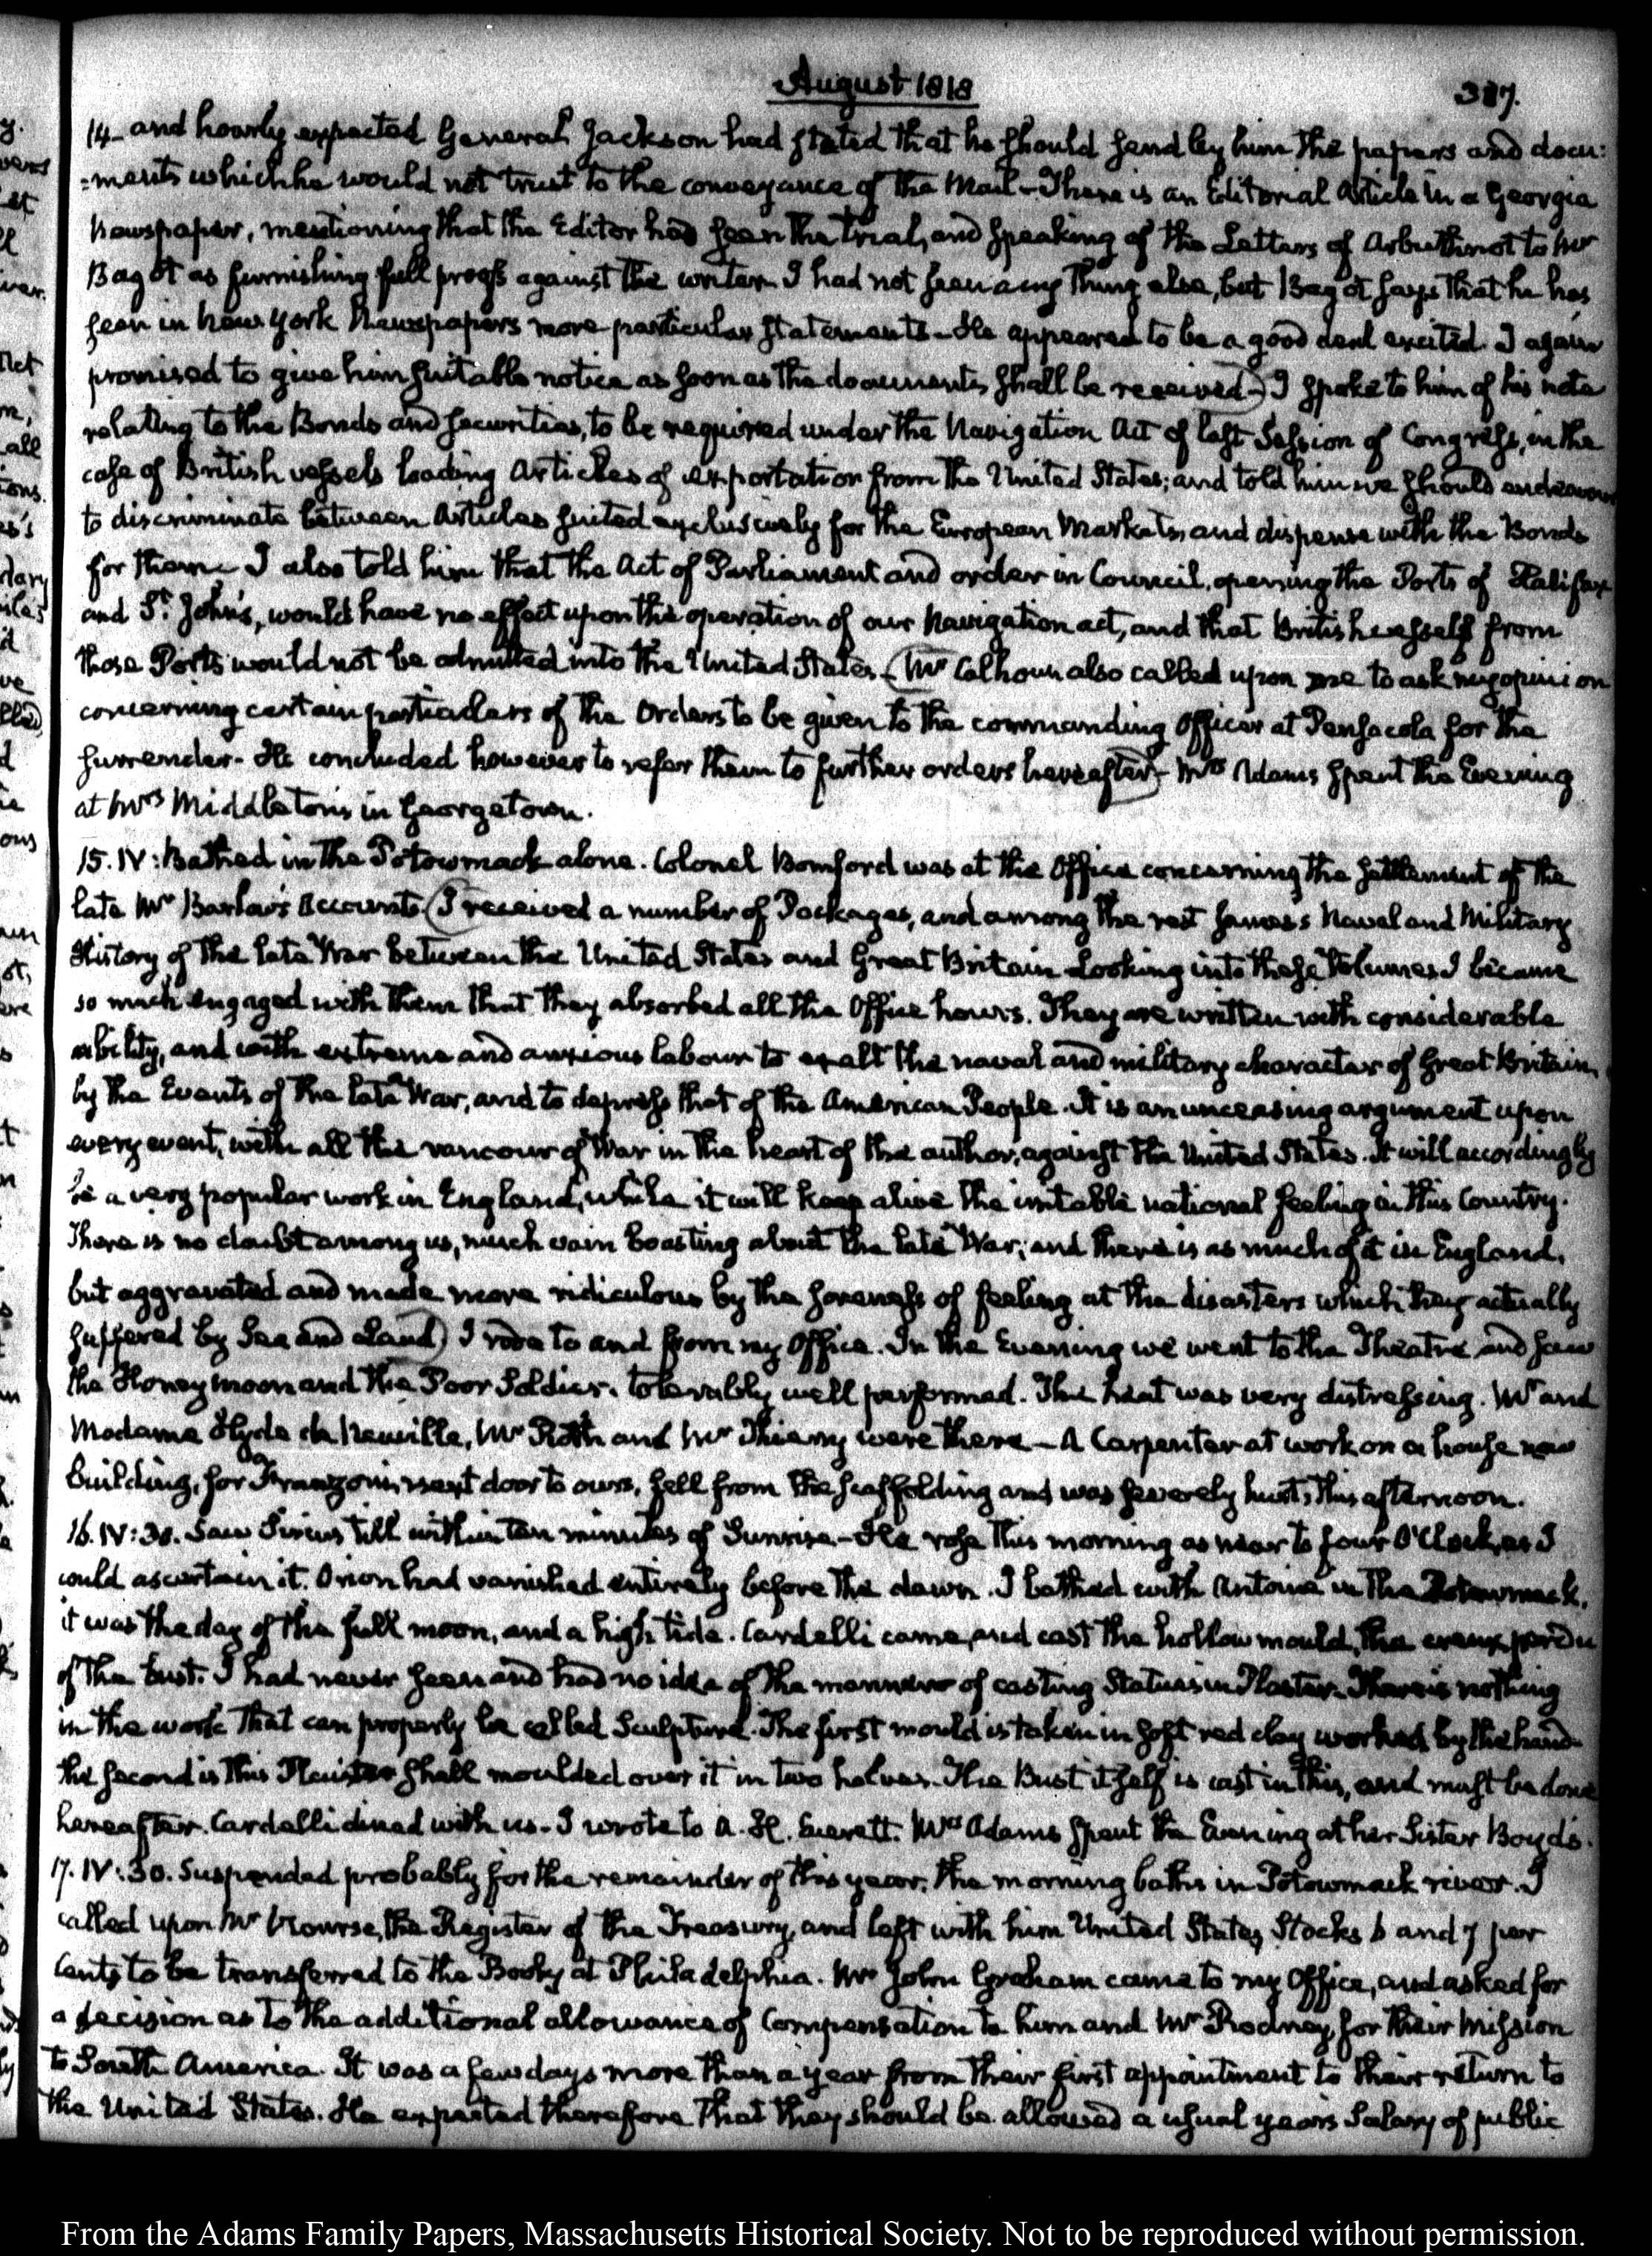 August 1818
387.
14— and hourly expected General Jackson had stated that he should send by him the papers and docu:
=ments which he would not trust to the conveyance of the Mail— There is an Editorial Article in a Georgia
Newspaper, mentioning that the Editor had seen the trial, and speaking of the Letters of Arbuthnot to Mr
Bagot as furnishing full proofs against the writer. I had not seen any thing else, but Bagot says that he has
seen in New York Newspapers more particular statements— He appeared to be a good deal excited. I again
promised to give him suitable notice as soon as the documents shall be received— I spoke to him of his note
relating to the Bonds and securities, to be required under the Navigation Act of last Session of Congress, in the
case of British vessels loading Articles of exportation from the United States; and told him we should endeavour
to discriminate between Articles suited exclusively for the European Markets, and dispense with the Bonds
for them— I also told him that the Act of Parliament and order in Council, opening the Ports of Halifax
and St. John's, would have no effect upon the operation of our Navigation act, and that British vessels from
those Ports would not be admitted into the United States— Mr Calhoun also called upon me to ask my opinion
concerning certain particulars of the Orders to be given to the commanding Officer at Pensacola for the
surrender— He concluded however to refer them to further orders hereafter— Mrs Adams spent the Evening
at Mrs Middleton's in Georgetown.
15. IV: Bathed in the Potowmack alone. Colonel Bomford was at the Office concerning the settlement of the
late Mr Barlow's Accounts. I received a number of Packages, and among the rest James's Naval and Military
History of the late War between the United States and Great Britain. Looking into these Volumes I became
so much engaged with them that they absorbed all the Office hours. They are written with considerable
ability, and with extreme and anxious labour to exalt the naval and military character of Great Britain,
by the Events of the late War, and to depress that of the American People. It is an unceasing argument upon
every event, with all the rancour of War in the heart of the author, against the United States. It will accordingly
be a very popular work in England, while it will keep alive the irritable national feeling in this Country.
There is no doubt among us, much vain boasting about the late War; and there is as much of it in England,
but aggravated and made more ridiculous by the soreness of feeling at the disasters which they actually
suffered by Sea and Land. I rode to and from my Office. In the Evening we went to the Theatre and saw
the Honey moon and the Poor Soldier. tolerably well performed. The heat was very distressing. Mr and
Madame Hyde de Neuville, Mr Roth and Mr Thierry were there— A Carpenter at work on a house now
building, for Franzoni, next door to ours, fell from the scaffolding and was severely hurt, this afternoon.
16. IV:30. Saw Sirius till within ten minutes of Sunrise— He rose this morning as near to four O'Clock, as I
could ascertain it. Orion had vanished entirely before the dawn. I bathed with Antoine in the Potowmack.
it was the day of the full moon, and a high tide. Cardelli came, and cast the hollow mould, the creux perdu
of the bust. I had never seen and had no idea of the manner of casting Statues in Plaster. There is nothing
in the work that can properly be called Sculpture. The first mould is taken in soft red clay worked by the hand—
the second is this Plaister shell moulded over it in two halves. The Bust itself is cast in this, and must be done
hereafter. Cardelli dined with us— I wrote to A. H. Everett. Mrs Adams spent the Evening at her Sister Boyd's.
17. IV:30. Suspended probably for the remainder of this year, the morning baths in Potowmack river. I
called upon Mr Nourse, the Register of the Treasury, and left with him United States Stocks 6 and 7 per
Cents to be transferred to the Books at Philadelphia. Mr John Graham came to my Office, and asked for
a decision as to the additional allowance of Compensation to him and Mr Rodney for their Mission
to South America. It was a few days more than a year from their first appointment to their return to
the United States. He expected therefore that they should be allowed a usual year's Salary of public
From the Adams Family Papers, Massachusetts Historical Society. Not to be reproduced without permission.